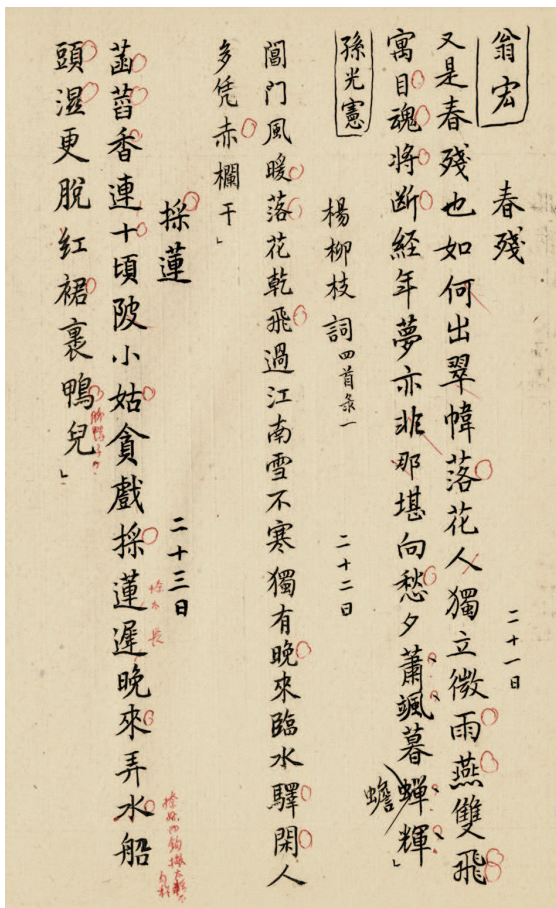 翁宏
春殘 二十一日
又是春殘也如何出翠幃落花人獨立微雨燕雙飛
寓目魂將断経年夢亦非那堪向愁夕蕭颯暮蝉輝
蟾
孫光憲
楊柳枝詞四首录一 二十二日
閶門風暖落花乾飛過江南雪不寒獨有晚來臨水驛閑人
多凭赤欄干
採蓮 二十三日
菡萏香連十頃陂小姑貪戲採蓮遲晚來弄水船
頭湿更脫紅裙裹鴨兒